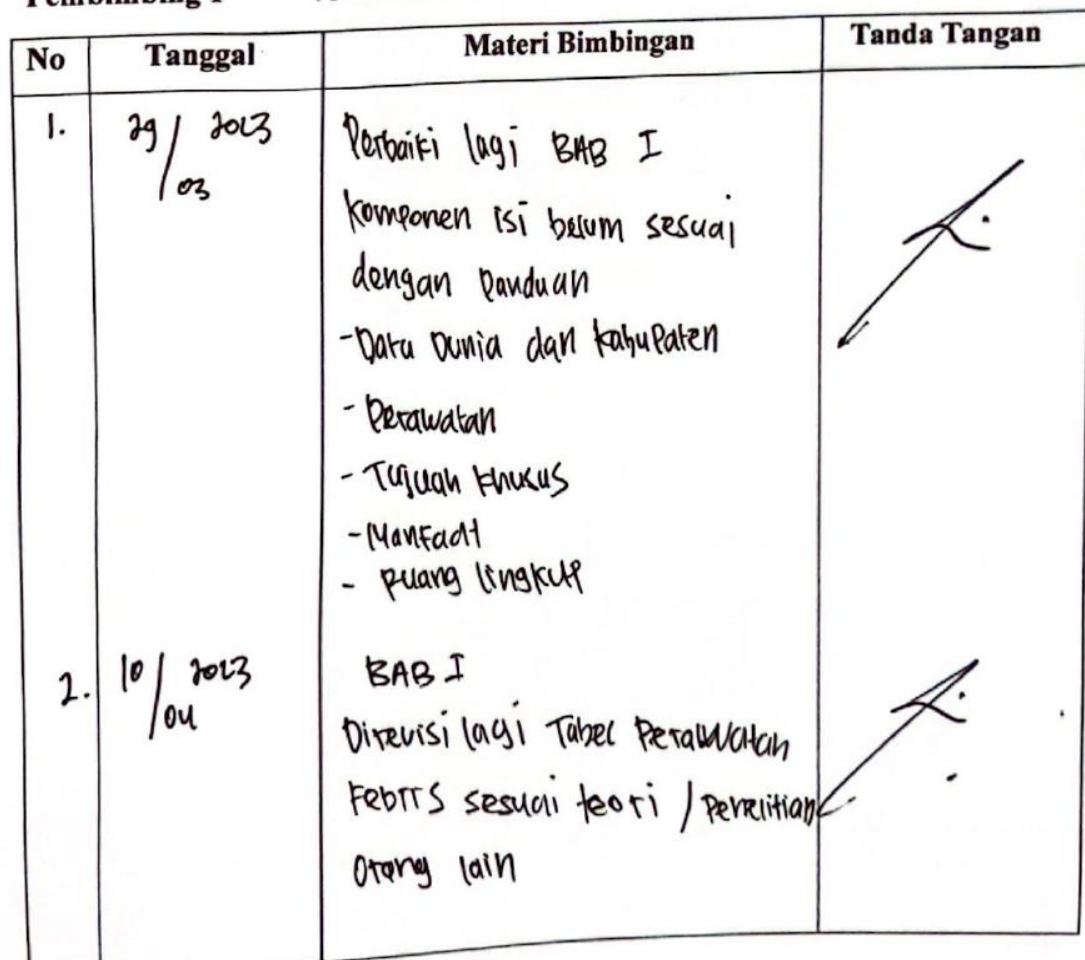 No Tanggal Materi Bimbingan Tanda Tangan
1. 29/03 2023 Perbaiki lagi BAB I
komponen isi belum sesuai
dengan Panduan
- Data Dunia dan kabupaten
- Perawatan
- Tujuan khusus
- Manfaat
- Ruang lingkup
2. 10/04 2023 BAB I
Direvisi lagi Tabel Perawatan
Febris sesuai teori / Penelitian
orang lain